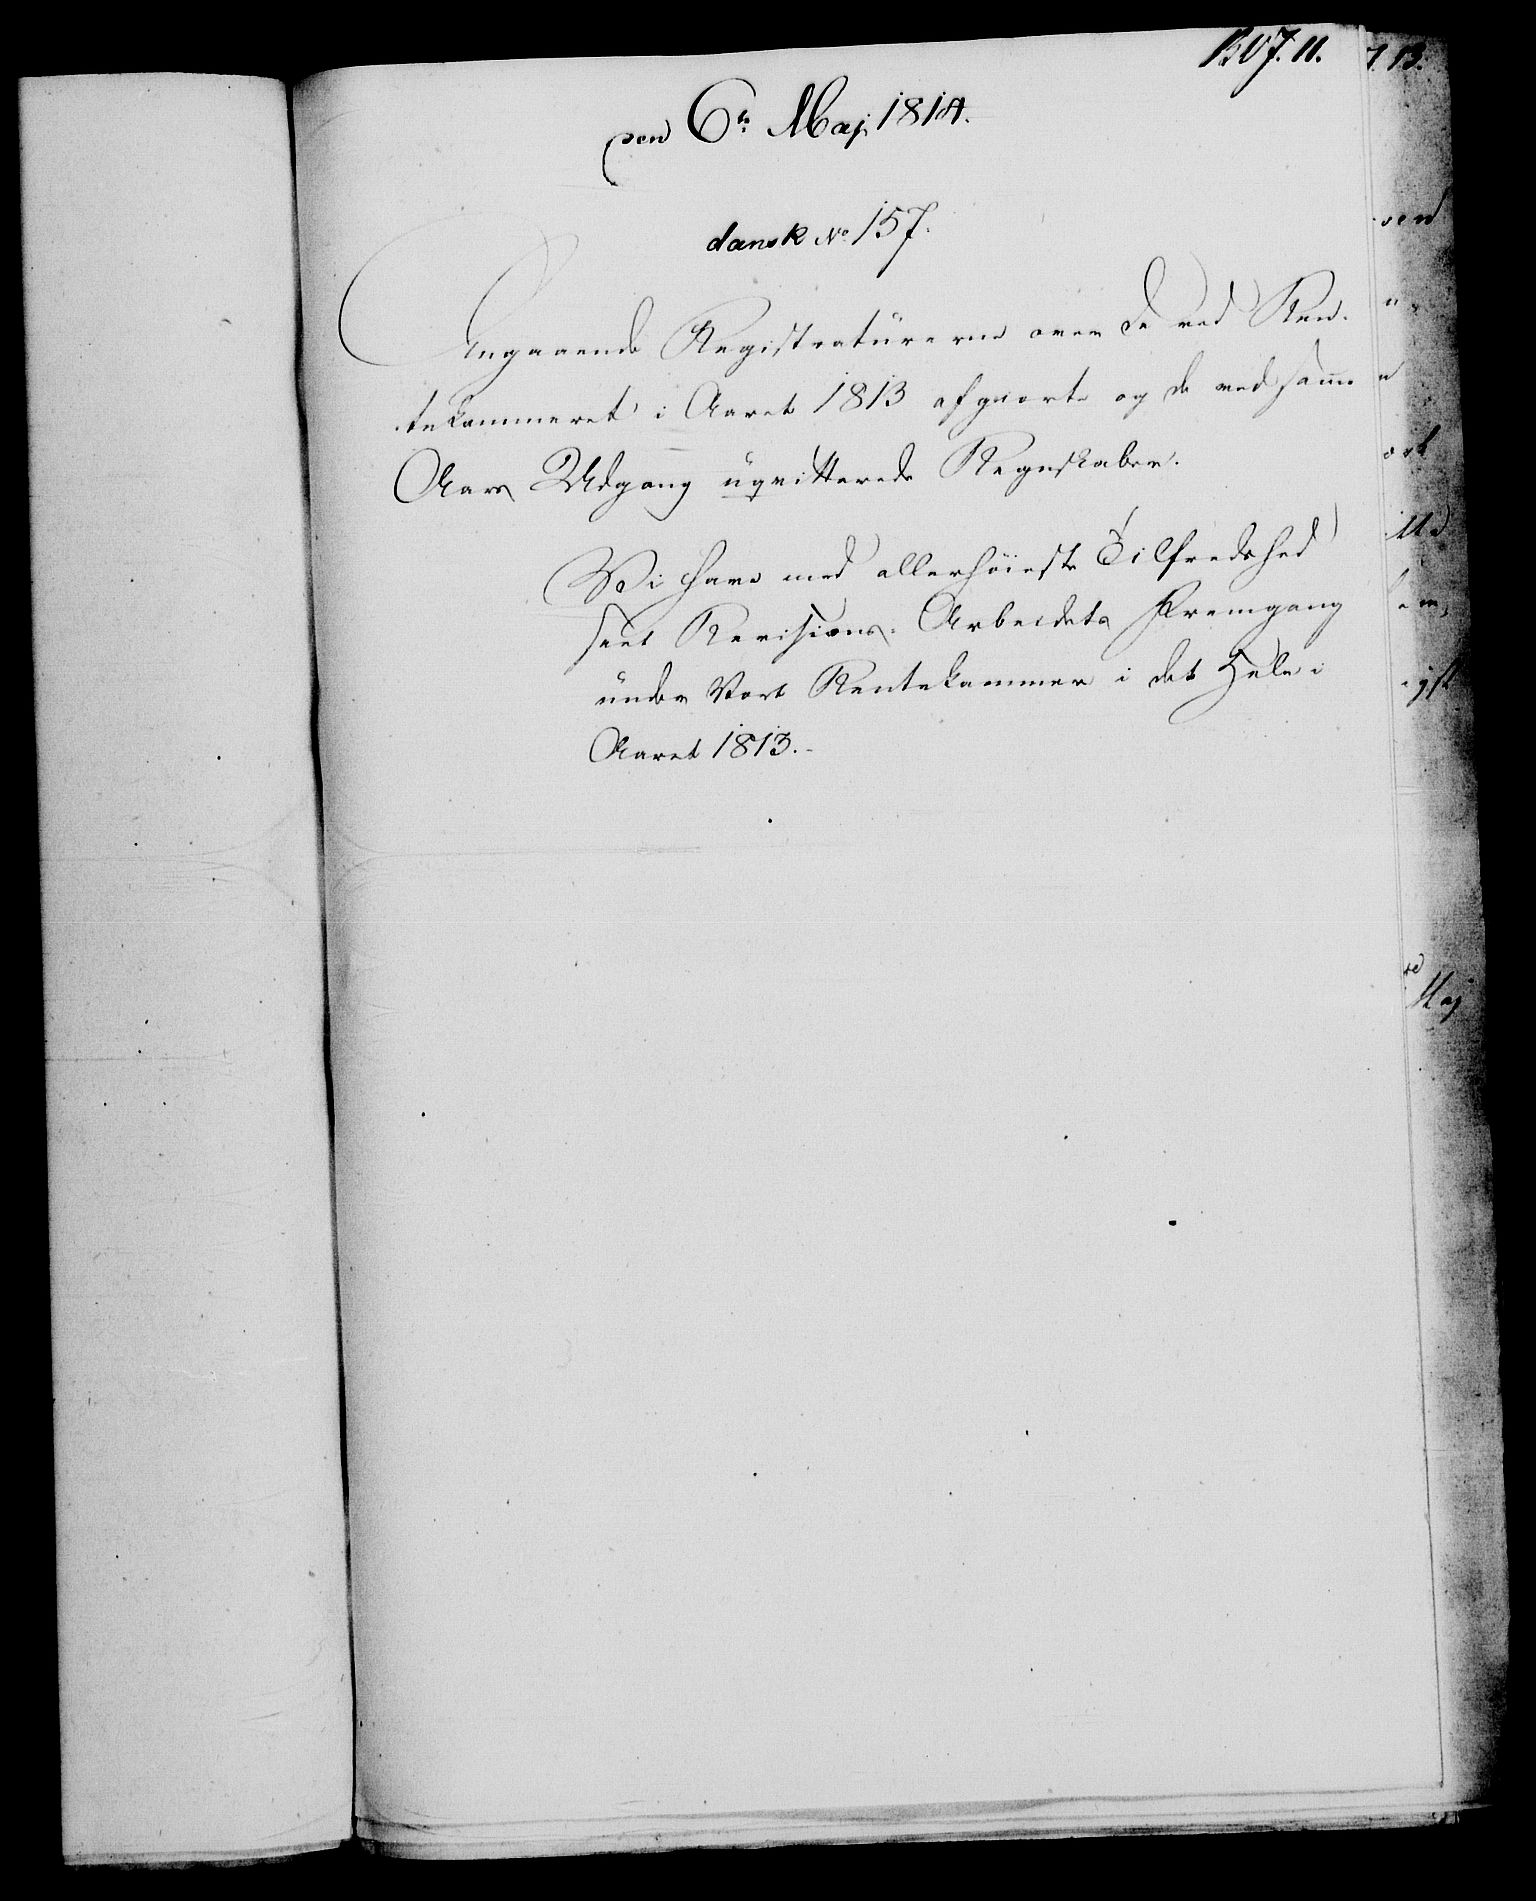 den 6te Maj 1814.
dansk No 157.
Angaaende Registraturerne over de ved Ren-
tekammeret i Aaret 1813 afgiorte og de ved samme
Aars Udgang uqvitterede Regnskaber.
Vi have med allerhøieste Tilfredshed
seet Revisions-Arbeidets Fremgang
under Vort Rentekammer i det Hele i
Aaret 1813.-
Maj